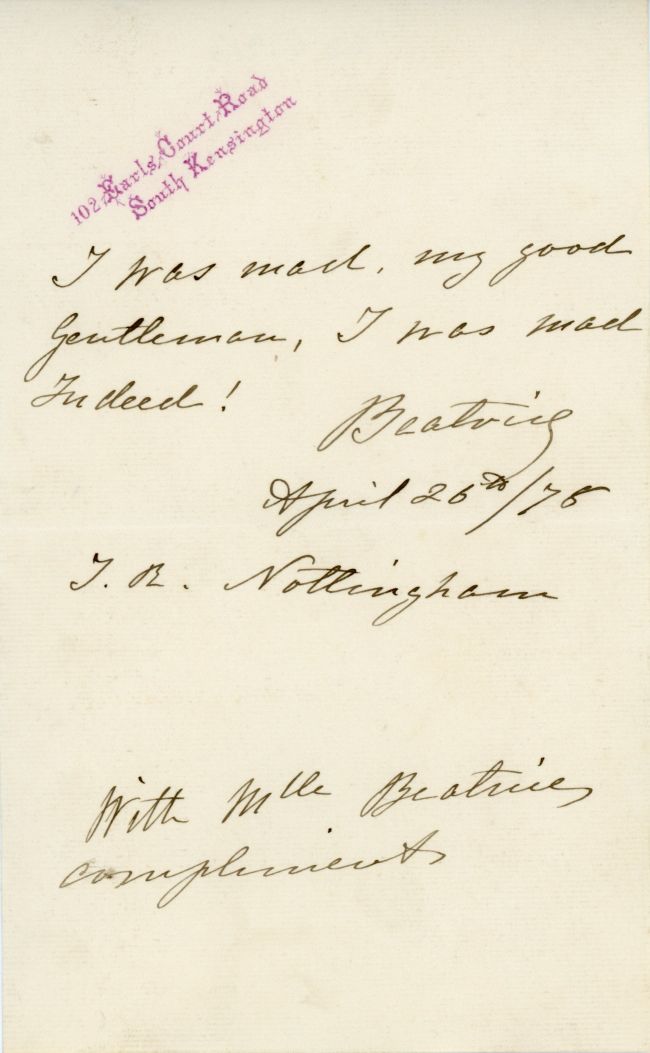 102, Earls Court Road
South Kensington
I was mad, my good
Gentleman, I was mad
Indeed!
Beatrice
April 26th/78
T. R. Nottingham
With Mlle Beatrices
compliments